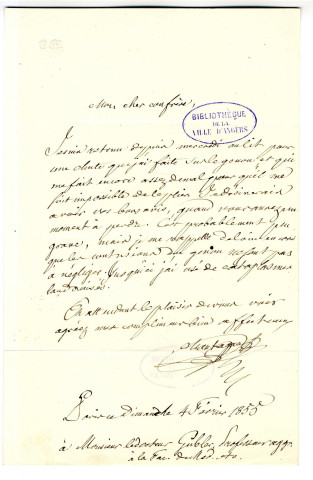 Mon cher confrère,
BIBLIOTHÈQUE
DE LA
VILLE D'ANGERS
Je suis retenu depuis mercredi au lit par
une chute que j'ai faite sur le genou, et qui
me fait encore assez de mal pour qu'il me
soit impossible de le plier. Je désirerais
avoir vos bons avis, quand vous aurez un
moment à perdre. C'est probablement peu
grave, mais je me rappelle
que les contusions du genou ne sont pas
à négliger. Jusqu'ici j'ai usé de cataplasmes
laudanisés.
En attendant le plaisir de vous voir
agréez mes compliments bien affectueux
Paris ce Dimanche 4 Février 1855
à Monsieur le docteur Gubler, Professeur agg.
à la Fac. de Méd. etc.